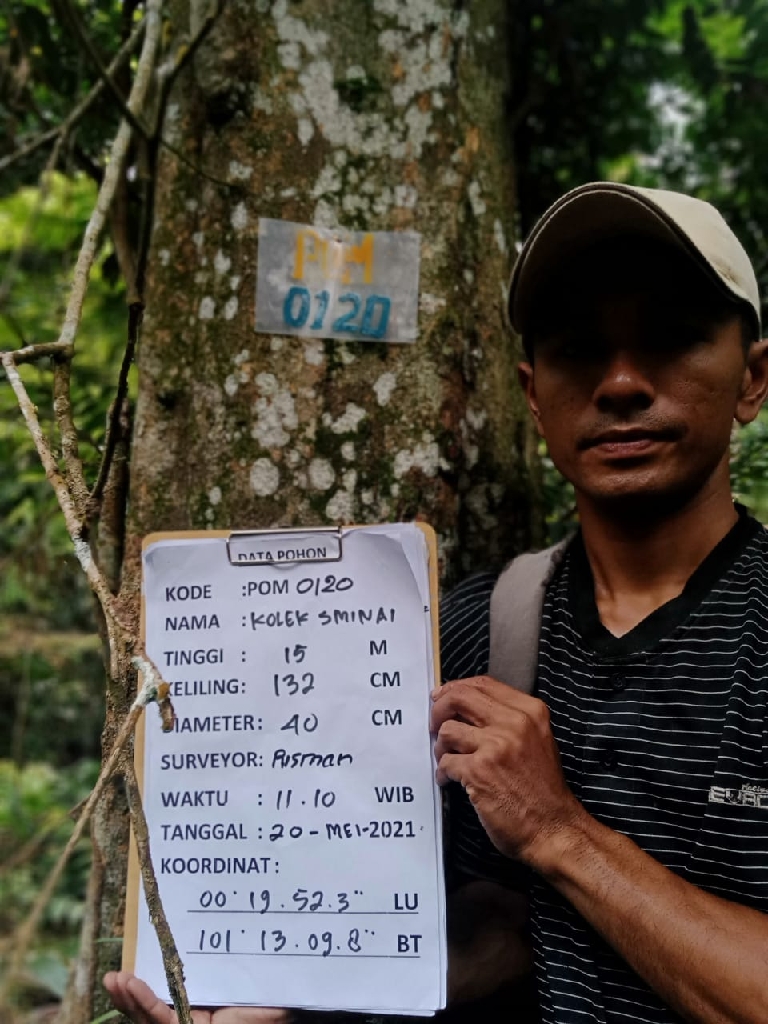 POM
0120
DATA POHON
KODE :POM 0120
NAMA :KOLEK SMINAI
TINGGI : 15 M
KELILING: 132 CM
DIAMETER: 40 CM
SURVEYOR: Pusman
WAKTU : 11.10 WIB
TANGGAL : 20 - MEI-2021
KOORDINAT:
00° 19. 52.3" LU
101° 13. 09.8" BT